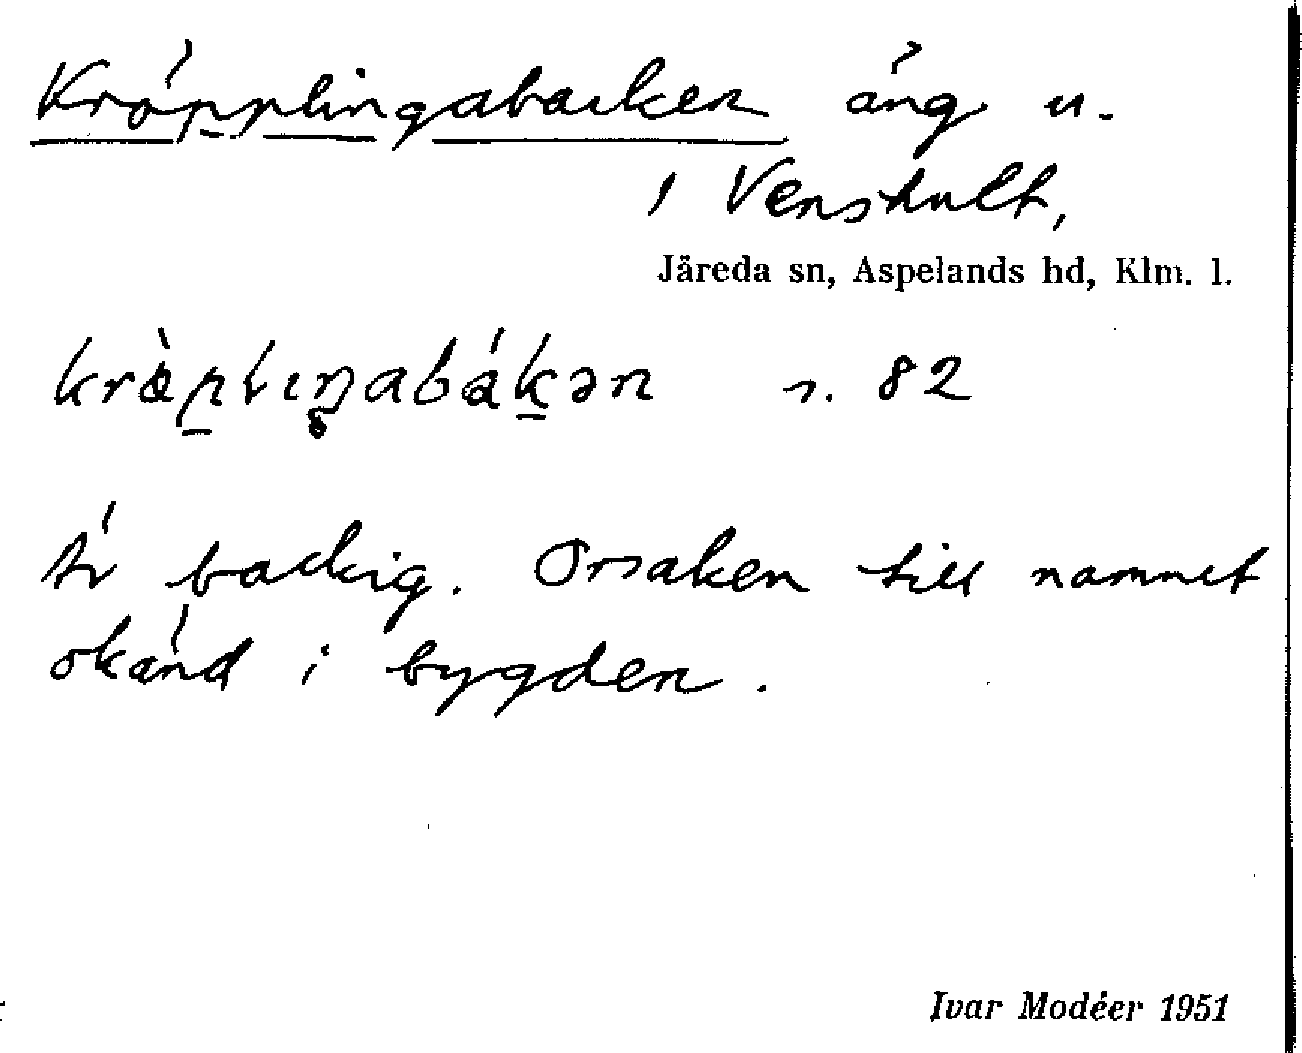 Kröpplingabacken äng u.
i Venshult,
Järeda sn, Aspelands hd, Klm. l.
krö̀p̠lıŋabák̠ən s. 82
Är backig. Orsaken till namnet
okänd i bygden.
Ivar Modéer 1951